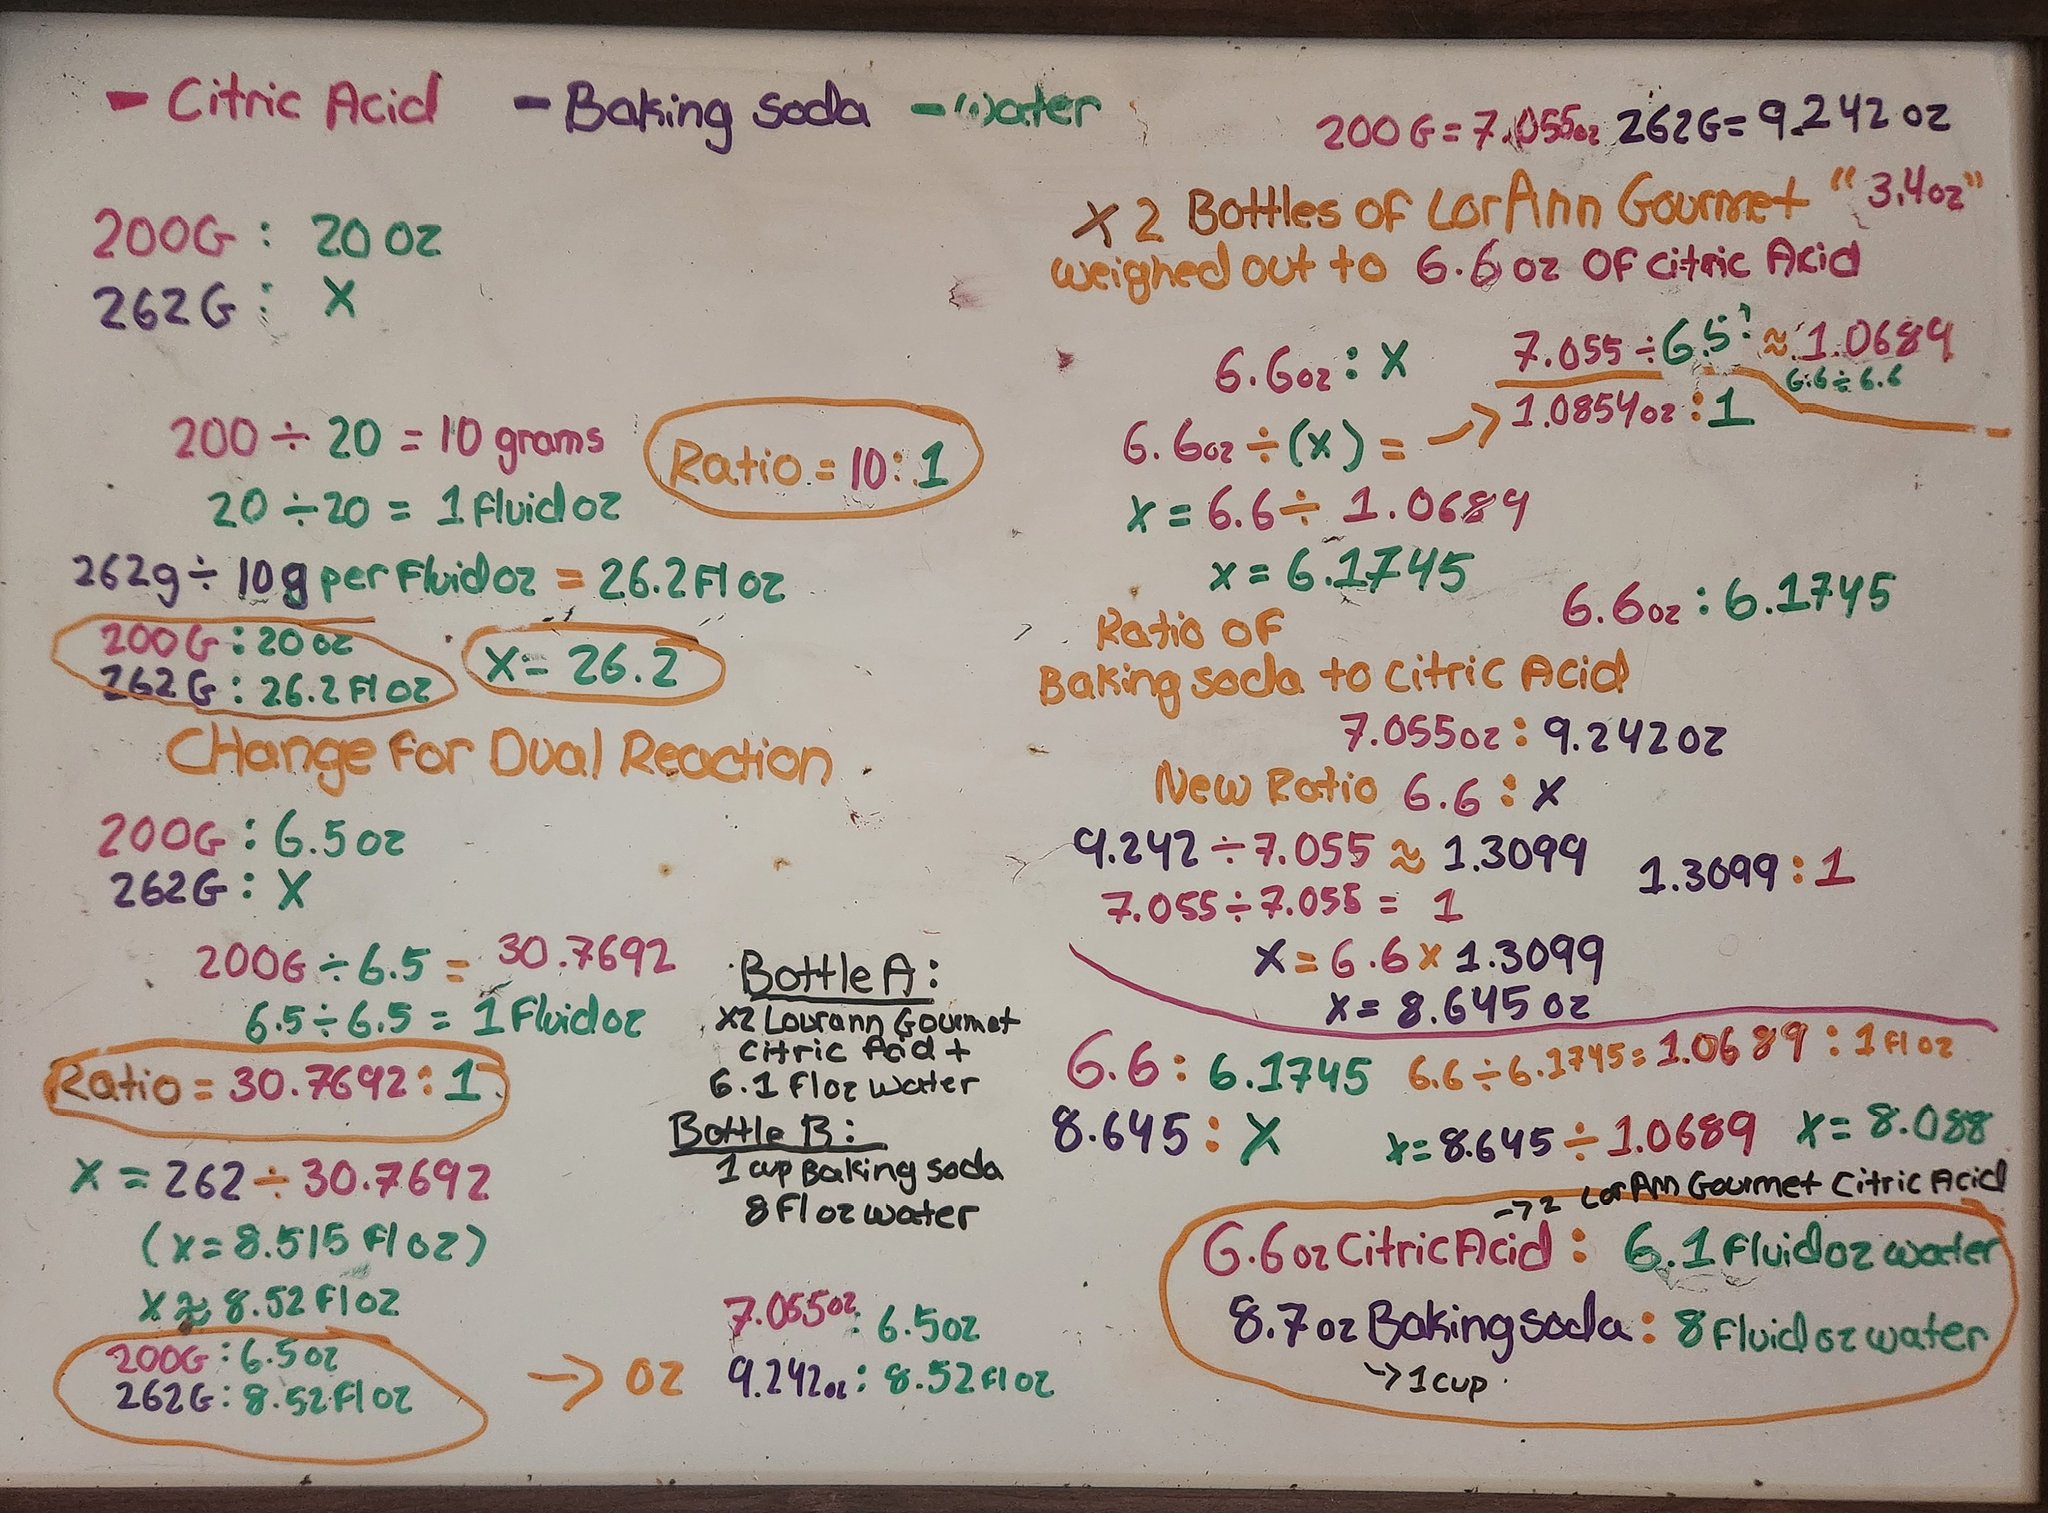 - Citric Acid - Baking soda - Water
200G : 20 oz
262G : X
200 ÷ 20 = 10 grams
20 ÷ 20 = 1 Fluid oz
Ratio = 10 : 1
262g ÷ 10g per Fluid oz = 26.2 Fl oz
200G : 20 oz
262G : 26.2 Fl oz
X = 26.2
CHange For Dual Reaction
200G : 6.5 oz
262G : X
200G ÷ 6.5 = 30.7692
6.5 ÷ 6.5 = 1 Fluid oz
Ratio = 30.7692 : 1
X = 262 ÷ 30.7692
(x = 8.515 Fl oz)
X ≈ 8.52 Fl oz
200G : 6.5 oz
262G : 8.52 Fl oz
-> oz
7.055oz : 6.5oz
9.242oz : 8.52 Fl oz
Bottle A:
x2 Lourann Gourmet
citric Acid +
6.1 Fl oz water
Bottle B:
1 cup Baking soda
8 Fl oz water
200G = 7.055oz 262G = 9.242 oz
X 2 Bottles of LorAnn Gourmet "3.4oz"
weighed out to 6.6 oz OF citric Acid
6.6oz : X
6.6oz ÷ (x) = ->
7.055 ÷ 6.5 ≈ 1.0689
6.6 ÷ 6.6
1.0854oz : 1
X = 6.6 ÷ 1.0689
x = 6.1745
6.6oz : 6.1745
Ratio OF
Baking soda to citric Acid
7.055oz : 9.242oz
New Ratio 6.6 : X
9.242 ÷ 7.055 ≈ 1.3099
7.055 ÷ 7.055 = 1
1.3099 : 1
X = 6.6 x 1.3099
x = 8.645 oz
6.6 : 6.1745
6.6 ÷ 6.1745 = 1.0689 : 1 Fl oz
8.645 : X
x = 8.645 ÷ 1.0689 X = 8.088
-> 2 LorAnn Gourmet Citric Acid
6.6oz Citric Acid : 6.1 Fluid oz water
8.7 oz Baking soda : 8 Fluid oz water
-> 1 cup